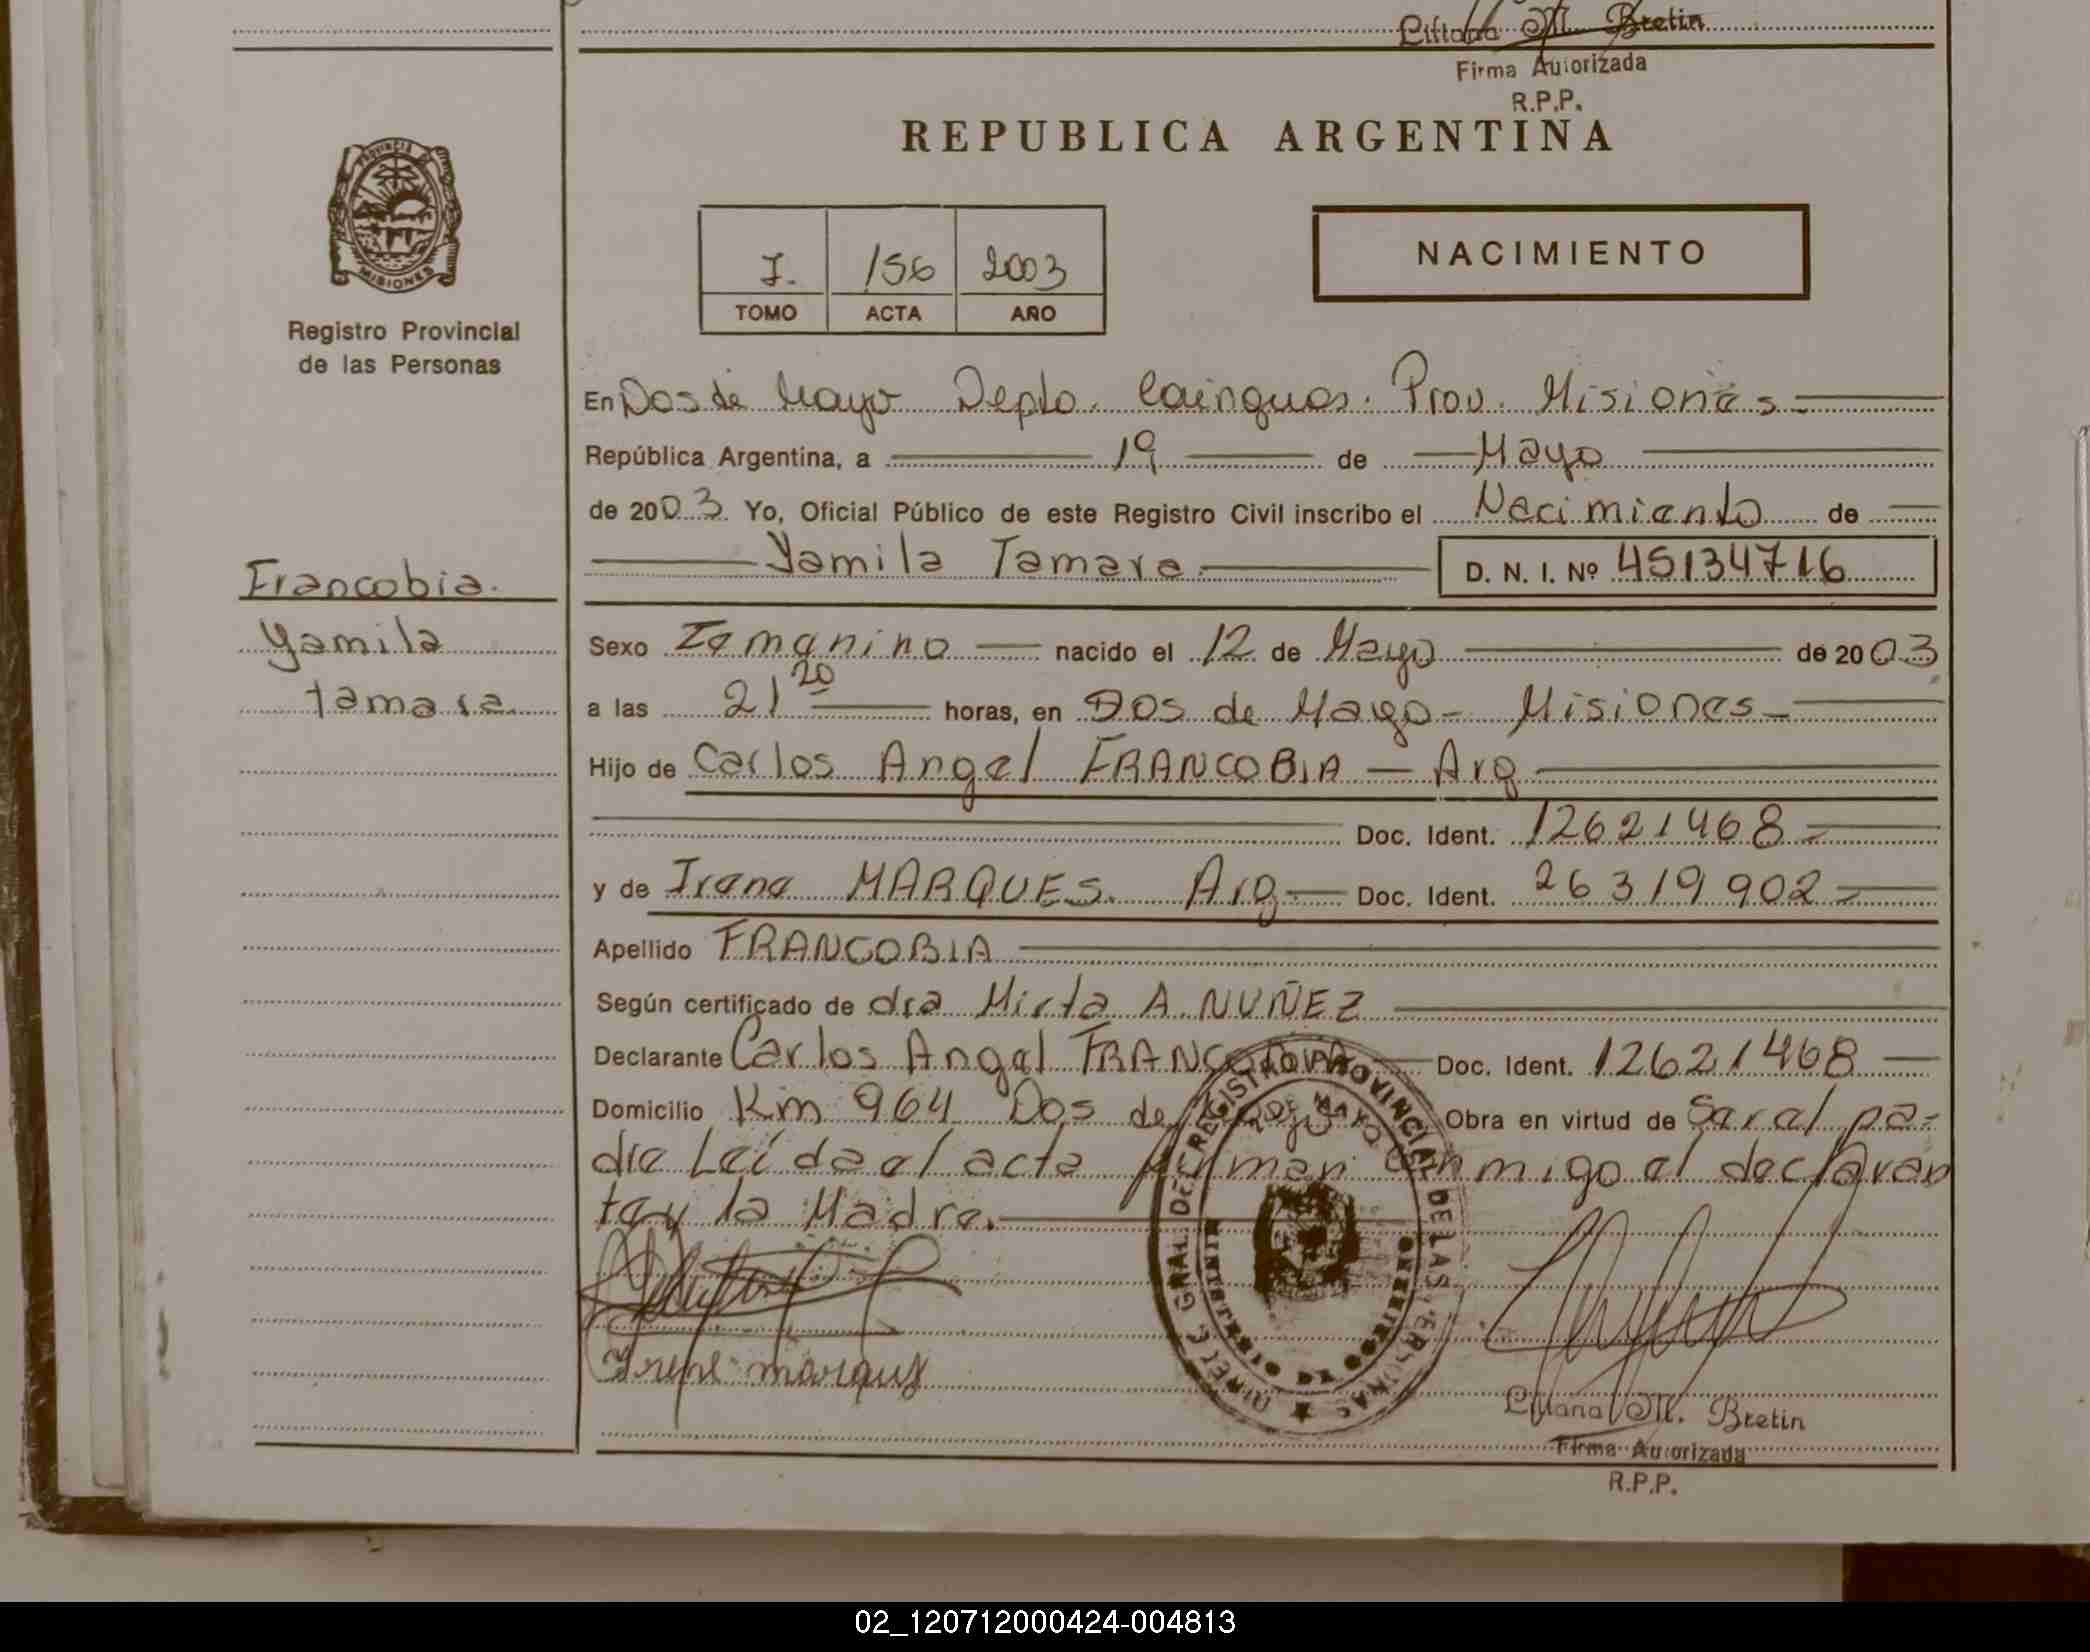 Liliana M. Bretin
Firma Autorizada
R.P.P.
REPUBLICA ARGENTINA
PROVINCIA DE
MISIONES
Registro Provincial
de las Personas
I. 156 2003
TOMO ACTA AÑO
NACIMIENTO
En Dos de Mayo Depto. Cainguas. Prov. Misiones
República Argentina, a 19 de Mayo
de 2003 Yo, Oficial Público de este Registro Civil inscribo el Nacimiento de
Yamila Tamara D. N. I. Nº 45134716
Francobia.
Yamila
Tamara
Sexo Femenino nacido el 12 de Mayo de 2003
a las 21 20 horas, en Dos de Mayo - Misiones
Hijo de Carlos Angel FRANCOBIA - Arg
Doc. Ident. 12621468
y de Irene MARQUES. Arg Doc. Ident. 26319902
Apellido FRANCOBIA
Según certificado de dra Mirta A. NUÑEZ
Declarante Carlos Angel FRANCOBIA Doc. Ident. 12621468
Domicilio Km 964 Dos de Mayo Obra en virtud de Ser el pa-
dre Leída el acta firman conmigo el declaran
te y la Madre.
DIREC. GRAL. DEL REGISTRO PROVINCIAL DE LAS PERSONAS
2 DE MAYO
MINISTERIO DE GOBIERNO
Irene marques
Liliana M. Bretin
Firma Autorizada
R.P.P.
02_120712000424-004813